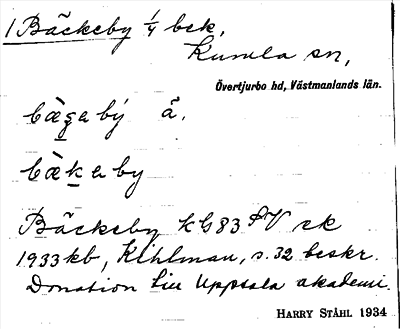 1 Bäckeby 1/4 bek.
Kumla sn,
Övertjurbo hd, Västmanlands län.
bæ̀gabý å.
bæ̀kaby
Bäckeby KG83 ek
1933 kb, Kihlman, s. 32 beskr.
Donation till Uppsala akademi.
HARRY STÅHL 1934